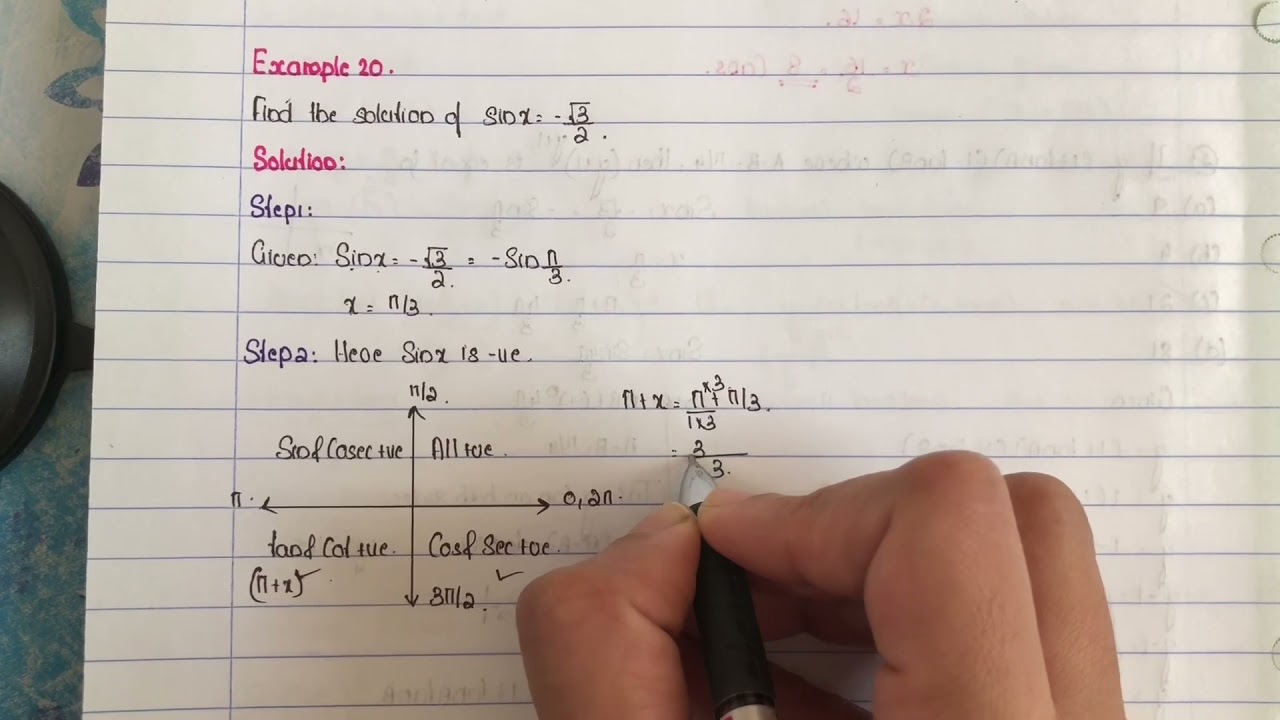 Example 20.
Find the solution of Sinx = -√3/2.
Solution:
Step1:
Given: Sinx = -√3/2. = -Sin π/3.
x = π/3.
Step2: Here Sinx is -ve.
π/2.
π+x = π×3/1×3 + π/3.
Sin & Cosec +ve
All +ve.
= 3/3.
π.
0, 2π.
tan & Cot +ve.
Cos & Sec +ve.
(π+x) ✓
✓
3π/2.
2x = 16.
x = 16/2 = 8 Cms.